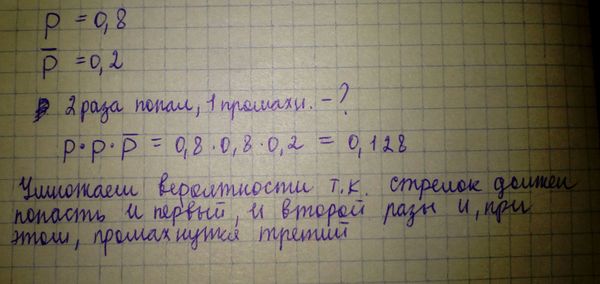 p = 0,8
p̅ = 0,2
2 раза попал, 1 промахн. - ?
p · p · p̅ = 0,8 · 0,8 · 0,2 = 0,128
Умножаем вероятности т.к. стрелок должен
попасть и первый, и второй разы и, при
этом, промахнуться третий